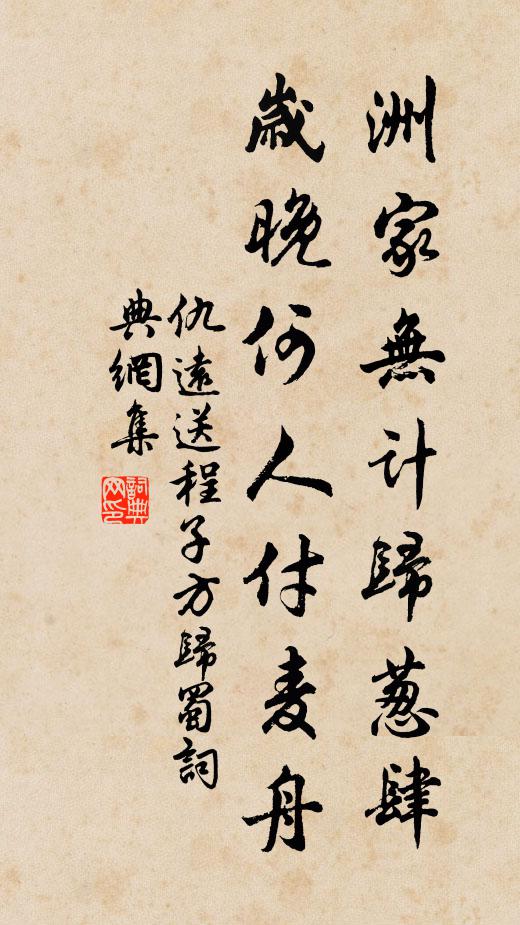 洲家無計歸葱肆
歳晚何人付麦舟
仇遠送程子方歸蜀詞
典網集
詞典网印